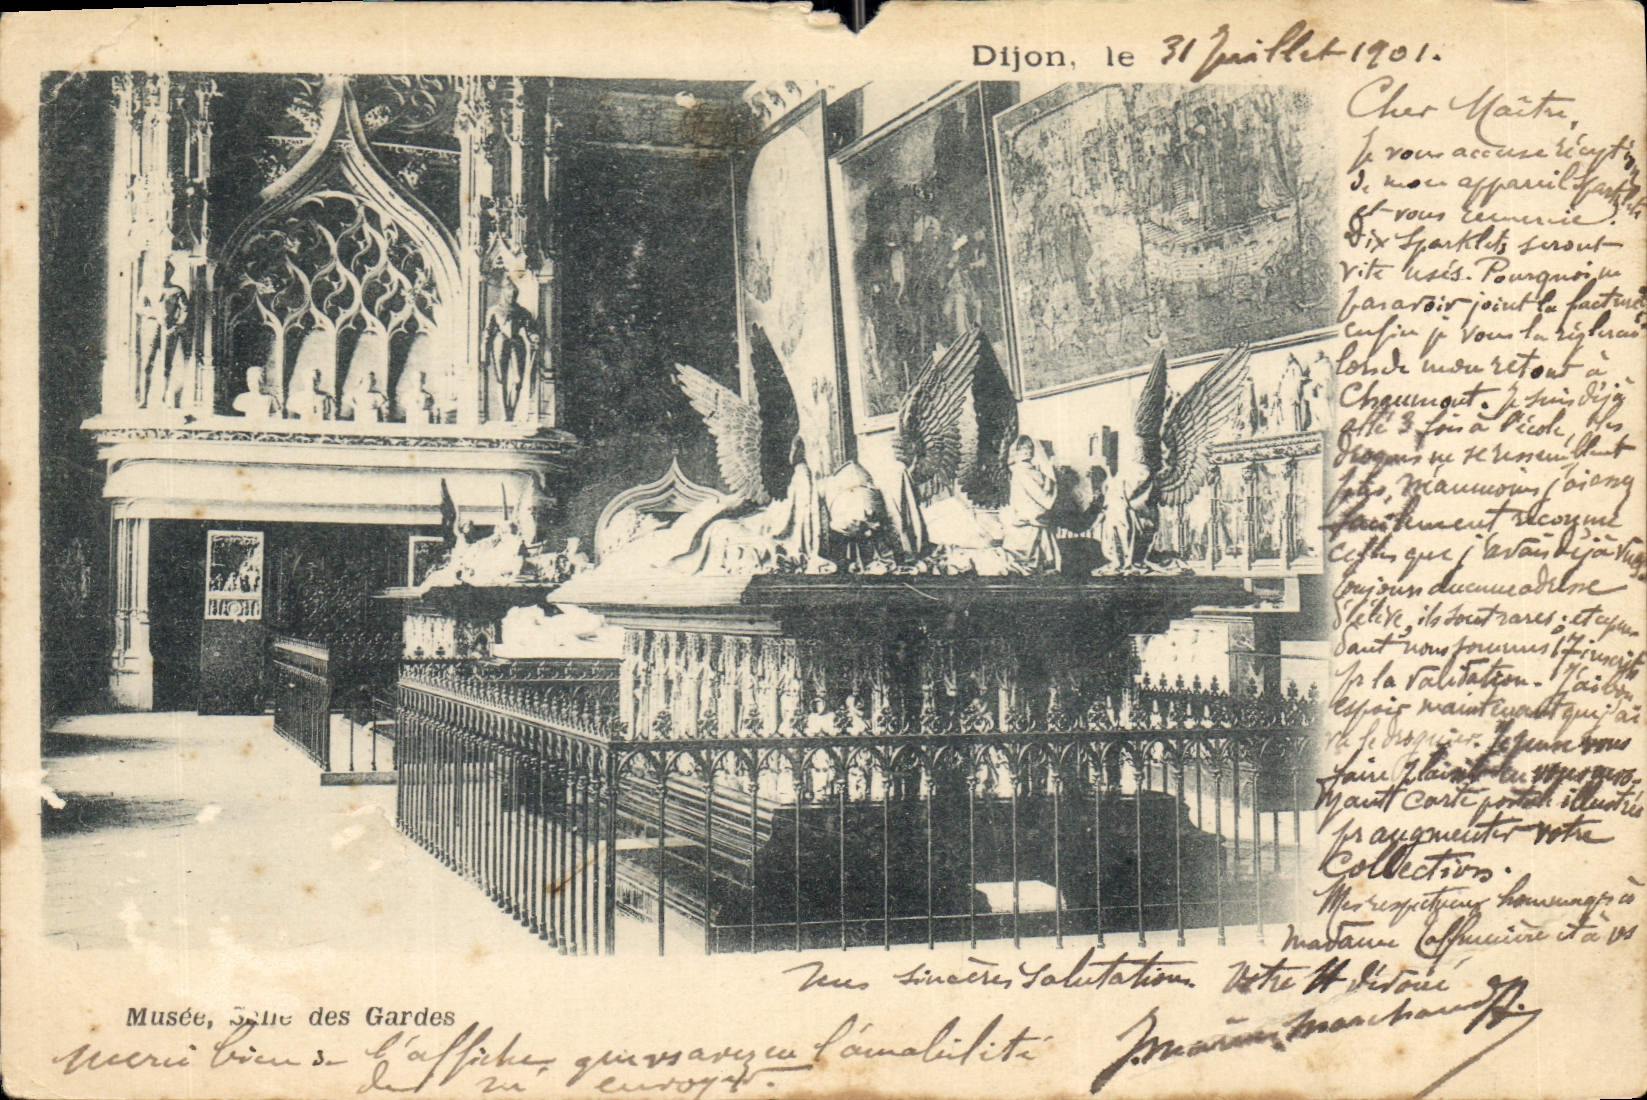 Dijon, le 31 Juillet 1901.
Cher Maître,
Je vous accuse réception
de mon appareil Sparklet
et vous remercie.
Dix Sparklets seront
vite usés. Pourquoi ne
pas avoir joint la facture
enfin je vous la règlerai
lors de mon retour à
Chaumont. Je suis déjà
allé 3 fois à l'école, les
drogues ne se ressemblent
pas, néanmoins j'ai assez
facilement reconnu
celles que j'avais déjà vues
toujours aucune adresse
d'élève, ils sont rares; et cepen-
dant nous sommes 17 inscrits
pr la validation. J'ai bon
espoir maintenant que j'ai
vu le droguier. Je pense vous
faire plaisir en vous
carte postale illustrée
pr augmenter votre
Collection.
Mes respectueux hommages à
Madame et à vs
mes sincères salutations. Votre tt dévoué
Marchand
Musée, Salle des Gardes
Merci bien de l'affiche que vs avez eu l'amabilité
de m'envoyer.